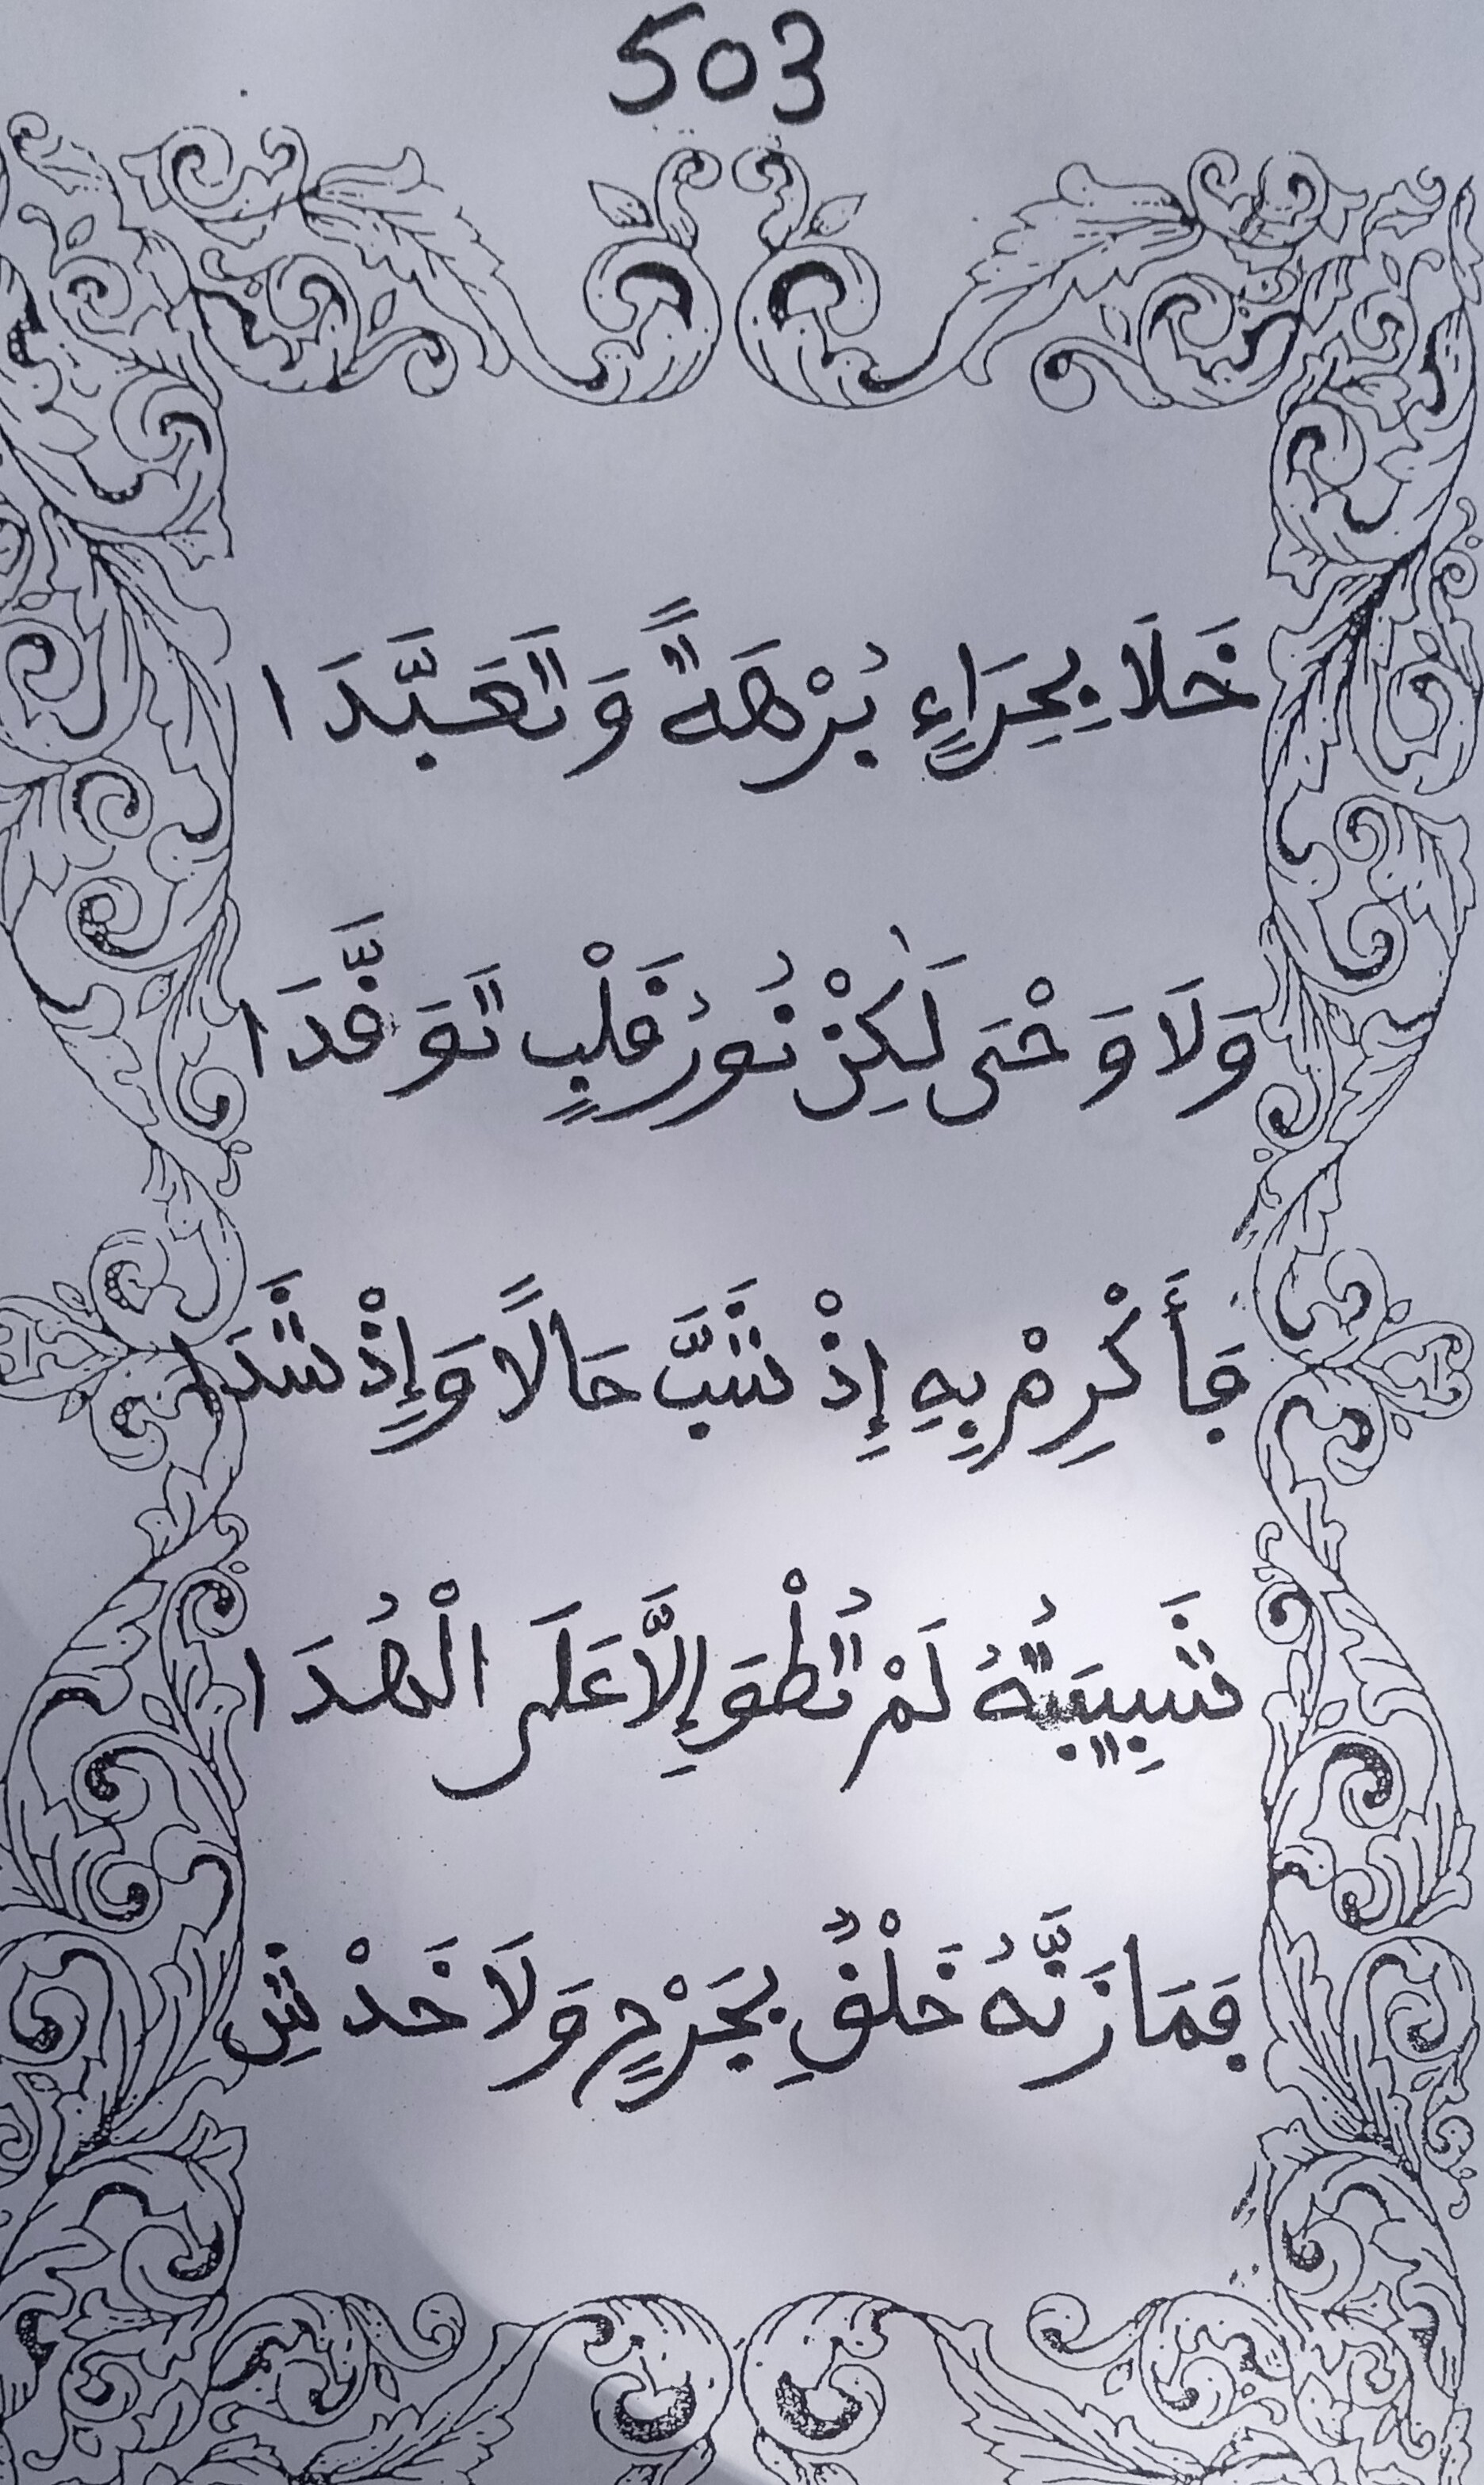 503
خَلَا بِحِرَاءٍ بُرْهَةً وَتَعَبَّدَا
وَلَا وَحْىَ لَٰكِنْ نُورُ قَلْبٍ تَوَقَّدَا
فَأَكْرِمْ بِهِ إِذْ شَبَّ حَالًا وَإِذْ شَدَا
شَبِيبَتُهُ لَمْ تُطْوَ إِلَّا عَلَى الْهُدَا
فَمَا زَنَّهُ خَلْقٌ بِجَرْحٍ وَلَا خَدْشِ